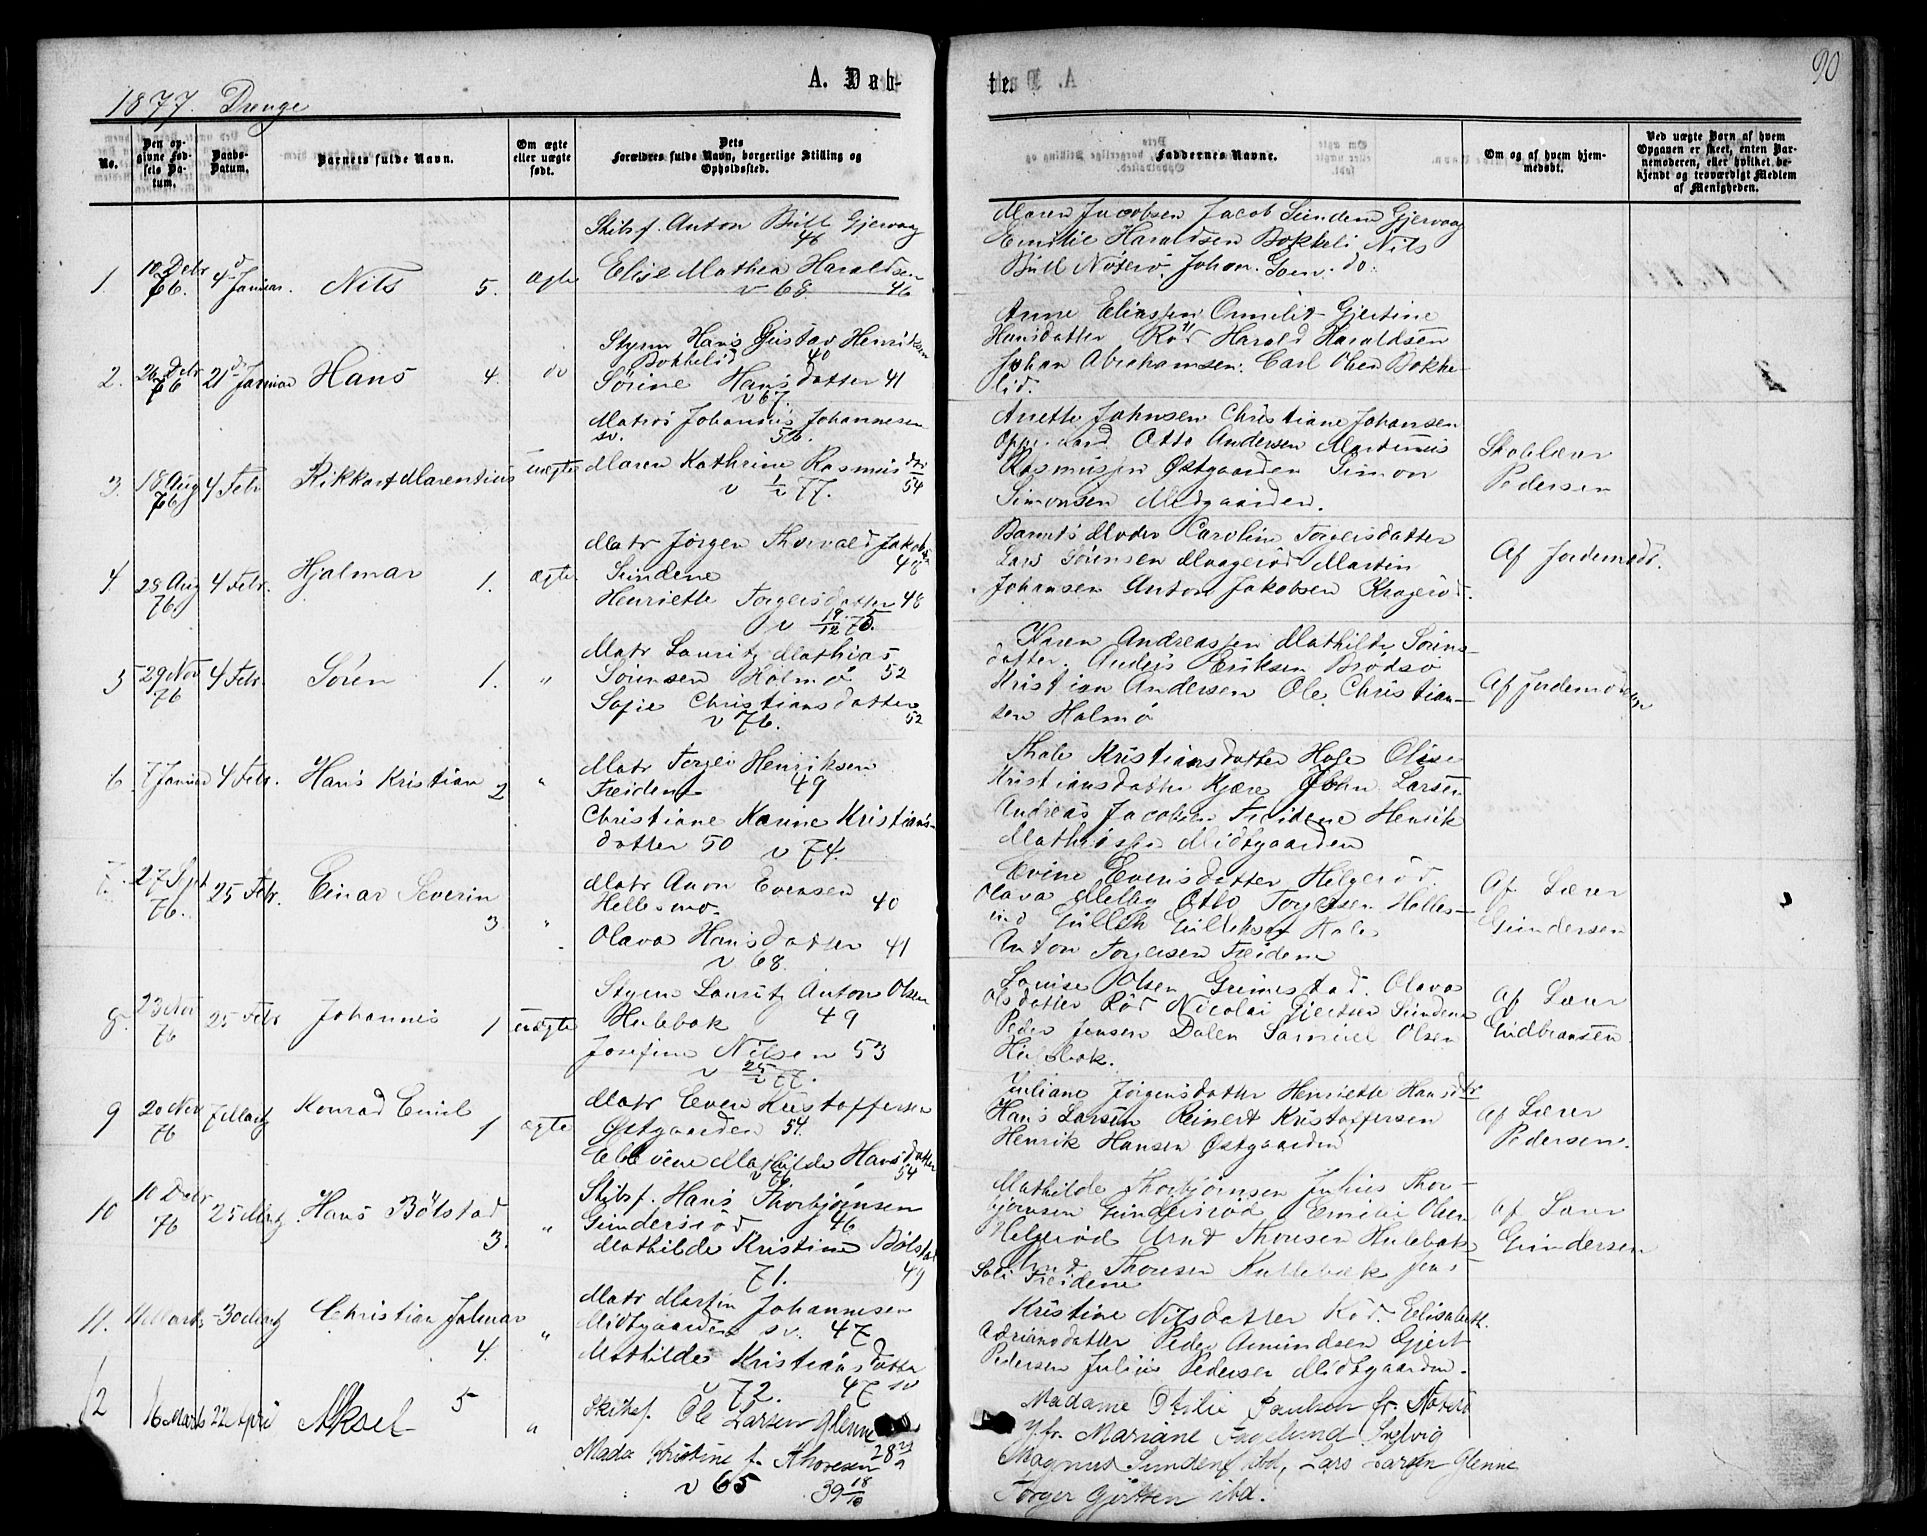 90
A. Dåb-
te.
1877. Drenge
No.
Den opgivne Fødsels Datum.
Daabs-Datum.
Barnets fulde Navn.
Om ægte eller uægte født.
Dets Forældres fulde Navn, borgerlige Stilling og Opholdssted.
Faddernes Navne.
Om og af hvem hjemmedøbt.
Ved uægte Barn af hvem Opgaven er skeet, enten Barnemoderen, eller hvilket bekjendt og troværdigt Medlem af Menigheden.
1 10 Debr 76. 4d Januar. Nils 5. ægte
Skibsf. Anton Bull Gjervaag
46
Elise Mathea Haraldsen
v 68. 46
Maren Jacobsen Jacob Sundene Gjervaag
Emilie Haraldsen Bokkeli Nils
Bull Nøterø. Johan do.
2. 26 Debr 76 21d Januar Hans 4. do
Styrm Hans Gustav Henriksen
Bokkelid 40
Sørine Hansdatter 41
v 67.
Anne Eliassen Gjertine
Hansdatter Rød Harald Haraldsen
Johan Abrahamsen. Carl Olsen Bokke-
lid.
3. 18 Aug 76 4 Febr Rikkart Marentius uægte
Matros Johannes Johannesen
sv. 56.
Maren Kathrine Rasmusdtr
v 77. 54
Anette Johnsen Christiane Johansen
Otto Andersen Martinius
Rasmussen Østgaarden Simon
Simonsen Midgaarden.
Skolelærer
Pedersen
4 28 Aug 76 4 Febr. Hjalmar 1. ægte
Matr Jørgen Thorvald Jakobsen
Sundene 48
Henriette Torgersdatter 48
v 19/12 75.
Barnets Moder Caroline Torgersdatter
Lars Sørensen Maagerød Martin
Johansen Anton Jakobsen Kragerød.
Af Jordemodr.
5 29 Nov 76 4 Febr. Sören 1. "
Matr Lauritz Mathias
Sørensen Holmø 52
Sofie Christiansdatter
v 76. 52
Karen Andreassen Mathilde Sørens-
datter. Anders Eriksen Brødsø
Kristian Andersen Ole Christian-
sen Holmø
Af Jordemoder
6. 7 Januar 4 Febr. Hans Kristian 2 "
Matr Torger Henriksen
Treidene 49
Christiane Karine Kristians-
datter 50 v 74.
Thale Kristiansdatter Hage Olise
Kristiansdatter Kjære John Larsen
Andreas Jacobsen Treidene Henrik
Mathissen Midtgaarden
7. 27 Spt 76. 25 Febr. Einar Severin 3 "
Matr Aron Evensen
Hellesmo. 40
Olava Hansdatter 41
v 68.
Evine Evensdatter Helgerød.
Olava Melby Otto Torgersen Helles-
Gullik Gulliksen Hale
Anton Torgersen Treidene
Af Lærer
Gundersen
8. 23 Nov 76 25 Febr Johannes 1 uægte
Styrm Lauritz Anton Olsen
Hulebak 49
Josefine Nilsen 53
v 25 77.
Louise Olsen Grimestad. Olava
Olsdatter Rød Nicolai Gjertsen Sundene
Peder Jensen Dalen Samuel Olsen
Hulebak.
af Lærer
Gudbransen.
9 20 Nov 76 7 Marts Konrad Emil 1 ægte
Matr Even Kristoffersen
Østgaarden 54.
Ellevine Mathilde Hansdatter
v 76 54
Juliane Jørgensdatter Henriette Hansdtr
Hans Larsen Reinert Kristoffersen
Henrik Hansen Østgaarden
af Lærer
Pedersen.
10 10 Debr 76 25 Marts. Hans Bölstad 3. "
Skibsf. Hans Thorbjørnsen
Gundersrød 46
Mathilde Kristine Bölstad
71. 49
Mathilde Thorbjørnsen Julius Thor-
bjørnsen Gundersrød Emilie Olsen
Helgerød Arnt Thoresen Hulebak
Thoresen Hullebæk Jens
Treidene
af Lærer
Gundersen
11. 11 Marts 30 Marts Christian Jalmar 4. "
Matr Martin Johannesen
Midtgaarden sv. 47
Mathilde Kristiansdatter
v 72. 47 sv
Kristine Nilsdatter Rød. Elisabeth
Adriansdatter Peder Amundsen Gjert
Pedersen Julius Pedersen Midtgaarden.
12 16 Marts 22 April Aksel 5 "
Skibsf. Ole Larsen Glenne
28
Mada Kristine f. Thoresen
v 65 39 18/10
Madame Otilie Paulsen fr. Nøterø
Jfr. Mariane Fagelund
Magnus Sundene ibd, Lars Larsen Glenne
Torger Gjertsen ibd.